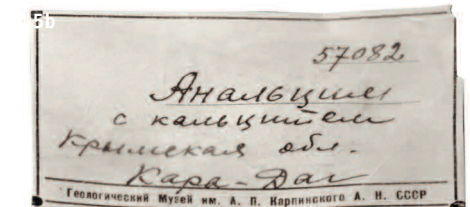 5b
57082
Анальцим
с кальцитем
Крымская обл.
Кара-Даг
Геологический Музей им. А. П. Карпинского А. Н. СССР